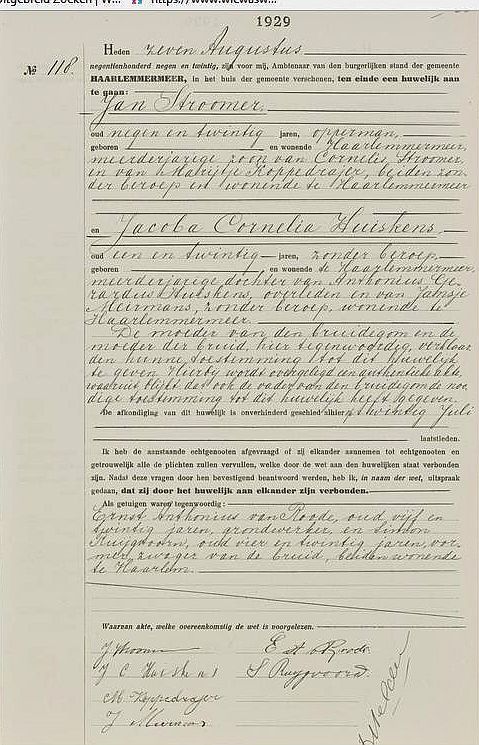 1929
Heden zeven Augustus
negentienhonderd negen en twintig, zijn voor mij, Ambtenaar van den burgerlijken stand der gemeente
№ 118.
HAARLEMMERMEER, in het huis der gemeente verschenen, ten einde een huwelijk aan
te gaan:
Jan Stroomer,
oud negen en twintig jaren, opperman,
geboren en wonende Haarlemmermeer,
meerderjarige zoon van Cornelis Stroomer,
en van Marijtje Koppedrajer, beiden zon-
der beroep en wonende te Haarlemmermeer
en Jacoba Cornelia Huiskens,
oud een en twintig jaren, zonder beroep,
geboren en wonende te Haarlemmermeer,
meerderjarige dochter van Anthonius Ge-
rardus Huiskens, overleden en van Jansje
Meirmans, zonder beroep, wonende te
Haarlemmermeer.
De moeder van den bruidegom en de
moeder der bruid, hier tegenwoordig, verklaar-
den hunne toestemming tot dit huwelijk
te geven Hierbij wordt overgelegd een authentieke akte,
waaruit blijkt dat ook de vader van den bruidegom de noo-
dige toestemming tot dit huwelijk heeft gegeven.
De afkondiging van dit huwelijk is onverhinderd geschied alhier, twintig Juli
laatstleden.
Ik heb de aanstaande echtgenooten afgevraagd of zij elkander aannemen tot echtgenooten en
getrouwelijk alle de plichten zullen vervullen, welke door de wet aan den huwelijken staat verbonden
zijn. Nadat deze vragen door hen bevestigend beantwoord werden, heb ik, in naam der wet, uitspraak
gedaan, dat zij door het huwelijk aan elkander zijn verbonden.
Als getuigen waren tegenwoordig:
Ernst Anthonius van Roode, oud vijf en
twintig jaren, grondwerker, en Simon
Ruijgvoorn, oud vier en twintig jaren, voer-
man, zwager van de bruid, beiden wonende
te Haarlem.
Waarvan akte, welke overeenkomstig de wet is voorgelezen.
J Stroomer
E A v Roode
J C Huiskens
S Ruijgvoorn
M. Koppedrajer
J Meirmans